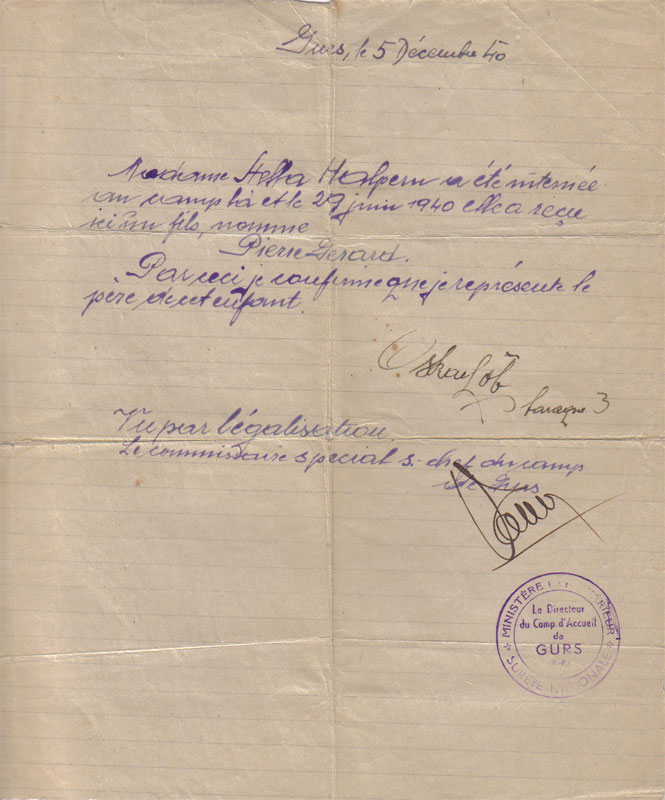 Gurs, le 5 Décembre 40
Madame Stella Halpern a été internée
au camp là et le 29 juin 1940 elle a reçu
ici un fils, nommé
Pierre Gerard.
Par ceci je confirme que je représente le
père de cet enfant.
Oskar Löb
baraque 3
Vu par légalisation.
Le commissaire special s. chef du camp
de Gurs
MINISTÈRE
SÛRETÉ NATIONALE
Le Directeur
du Camp d'Accueil
de
GURS
(B.-P.)